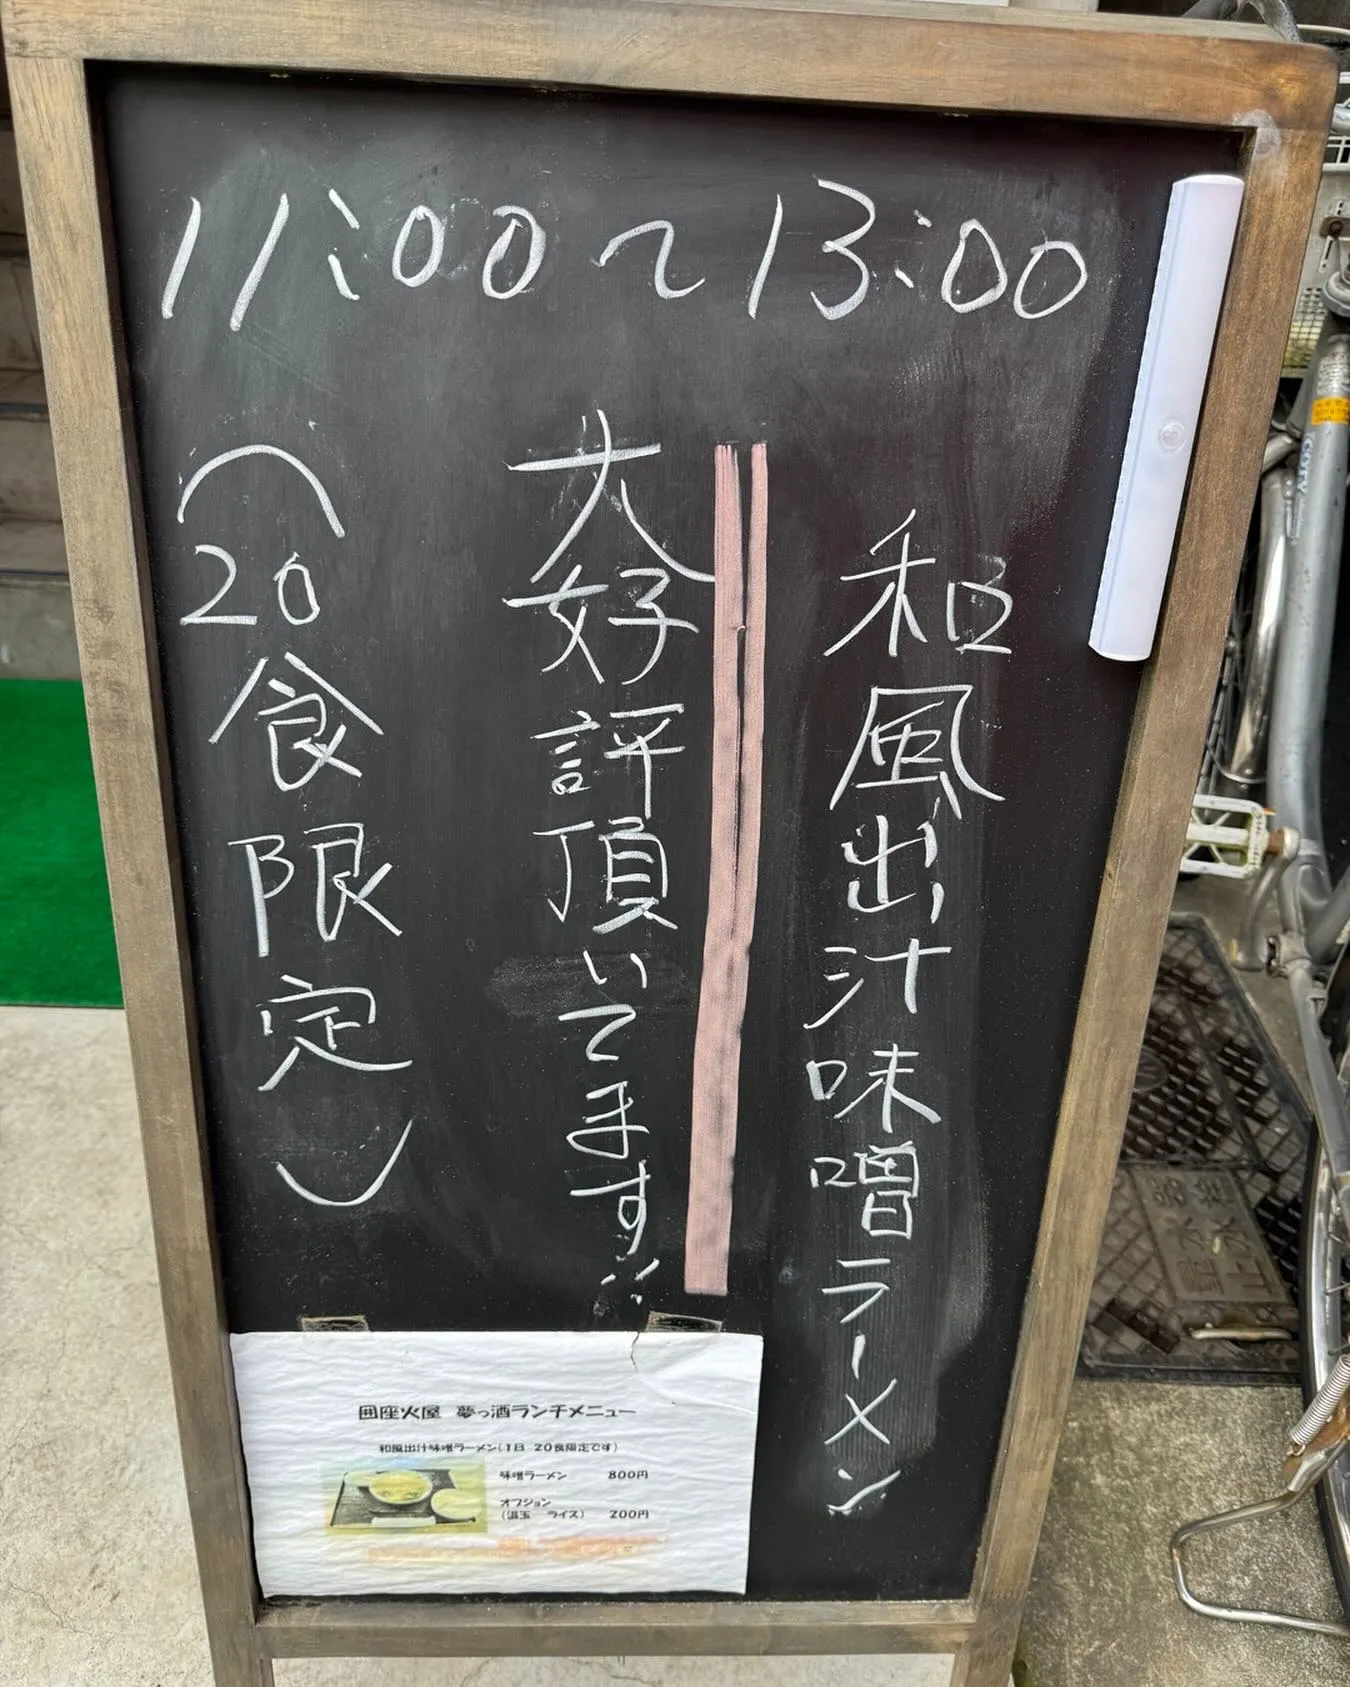 11:00〜13:00
和風出汁味噌ラーメン
大好評頂いてます!!
(20食限定)
囲座火屋 夢っ酒ランチメニュー
和風出汁味噌ラーメン(1日 20食限定です)
味噌ラーメン 800円
オプション
(温玉 ライス) 200円